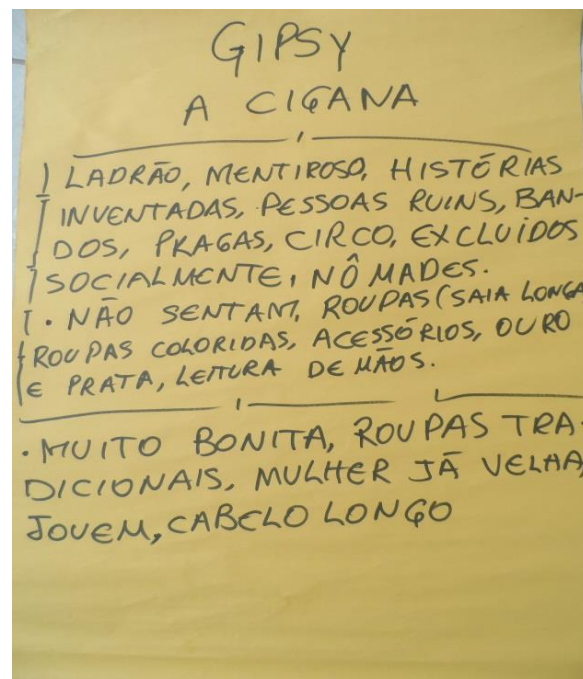 GIPSY
A CIGANA
LADRÃO, MENTIROSO, HISTÓRIAS
INVENTADAS, PESSOAS RUINS, BAN-
DOS, PRAGAS, CIRCO, EXCLUÍDOS
SOCIALMENTE, NÔMADES.
• NÃO SENTAM, ROUPAS (SAIA LONGA
ROUPAS COLORIDAS, ACESSÓRIOS, OURO
E PRATA, LEITURA DE MÃOS.
• MUITO BONITA, ROUPAS TRA-
DICIONAIS, MULHER JÁ VELHA,
JOVEM, CABELO LONGO